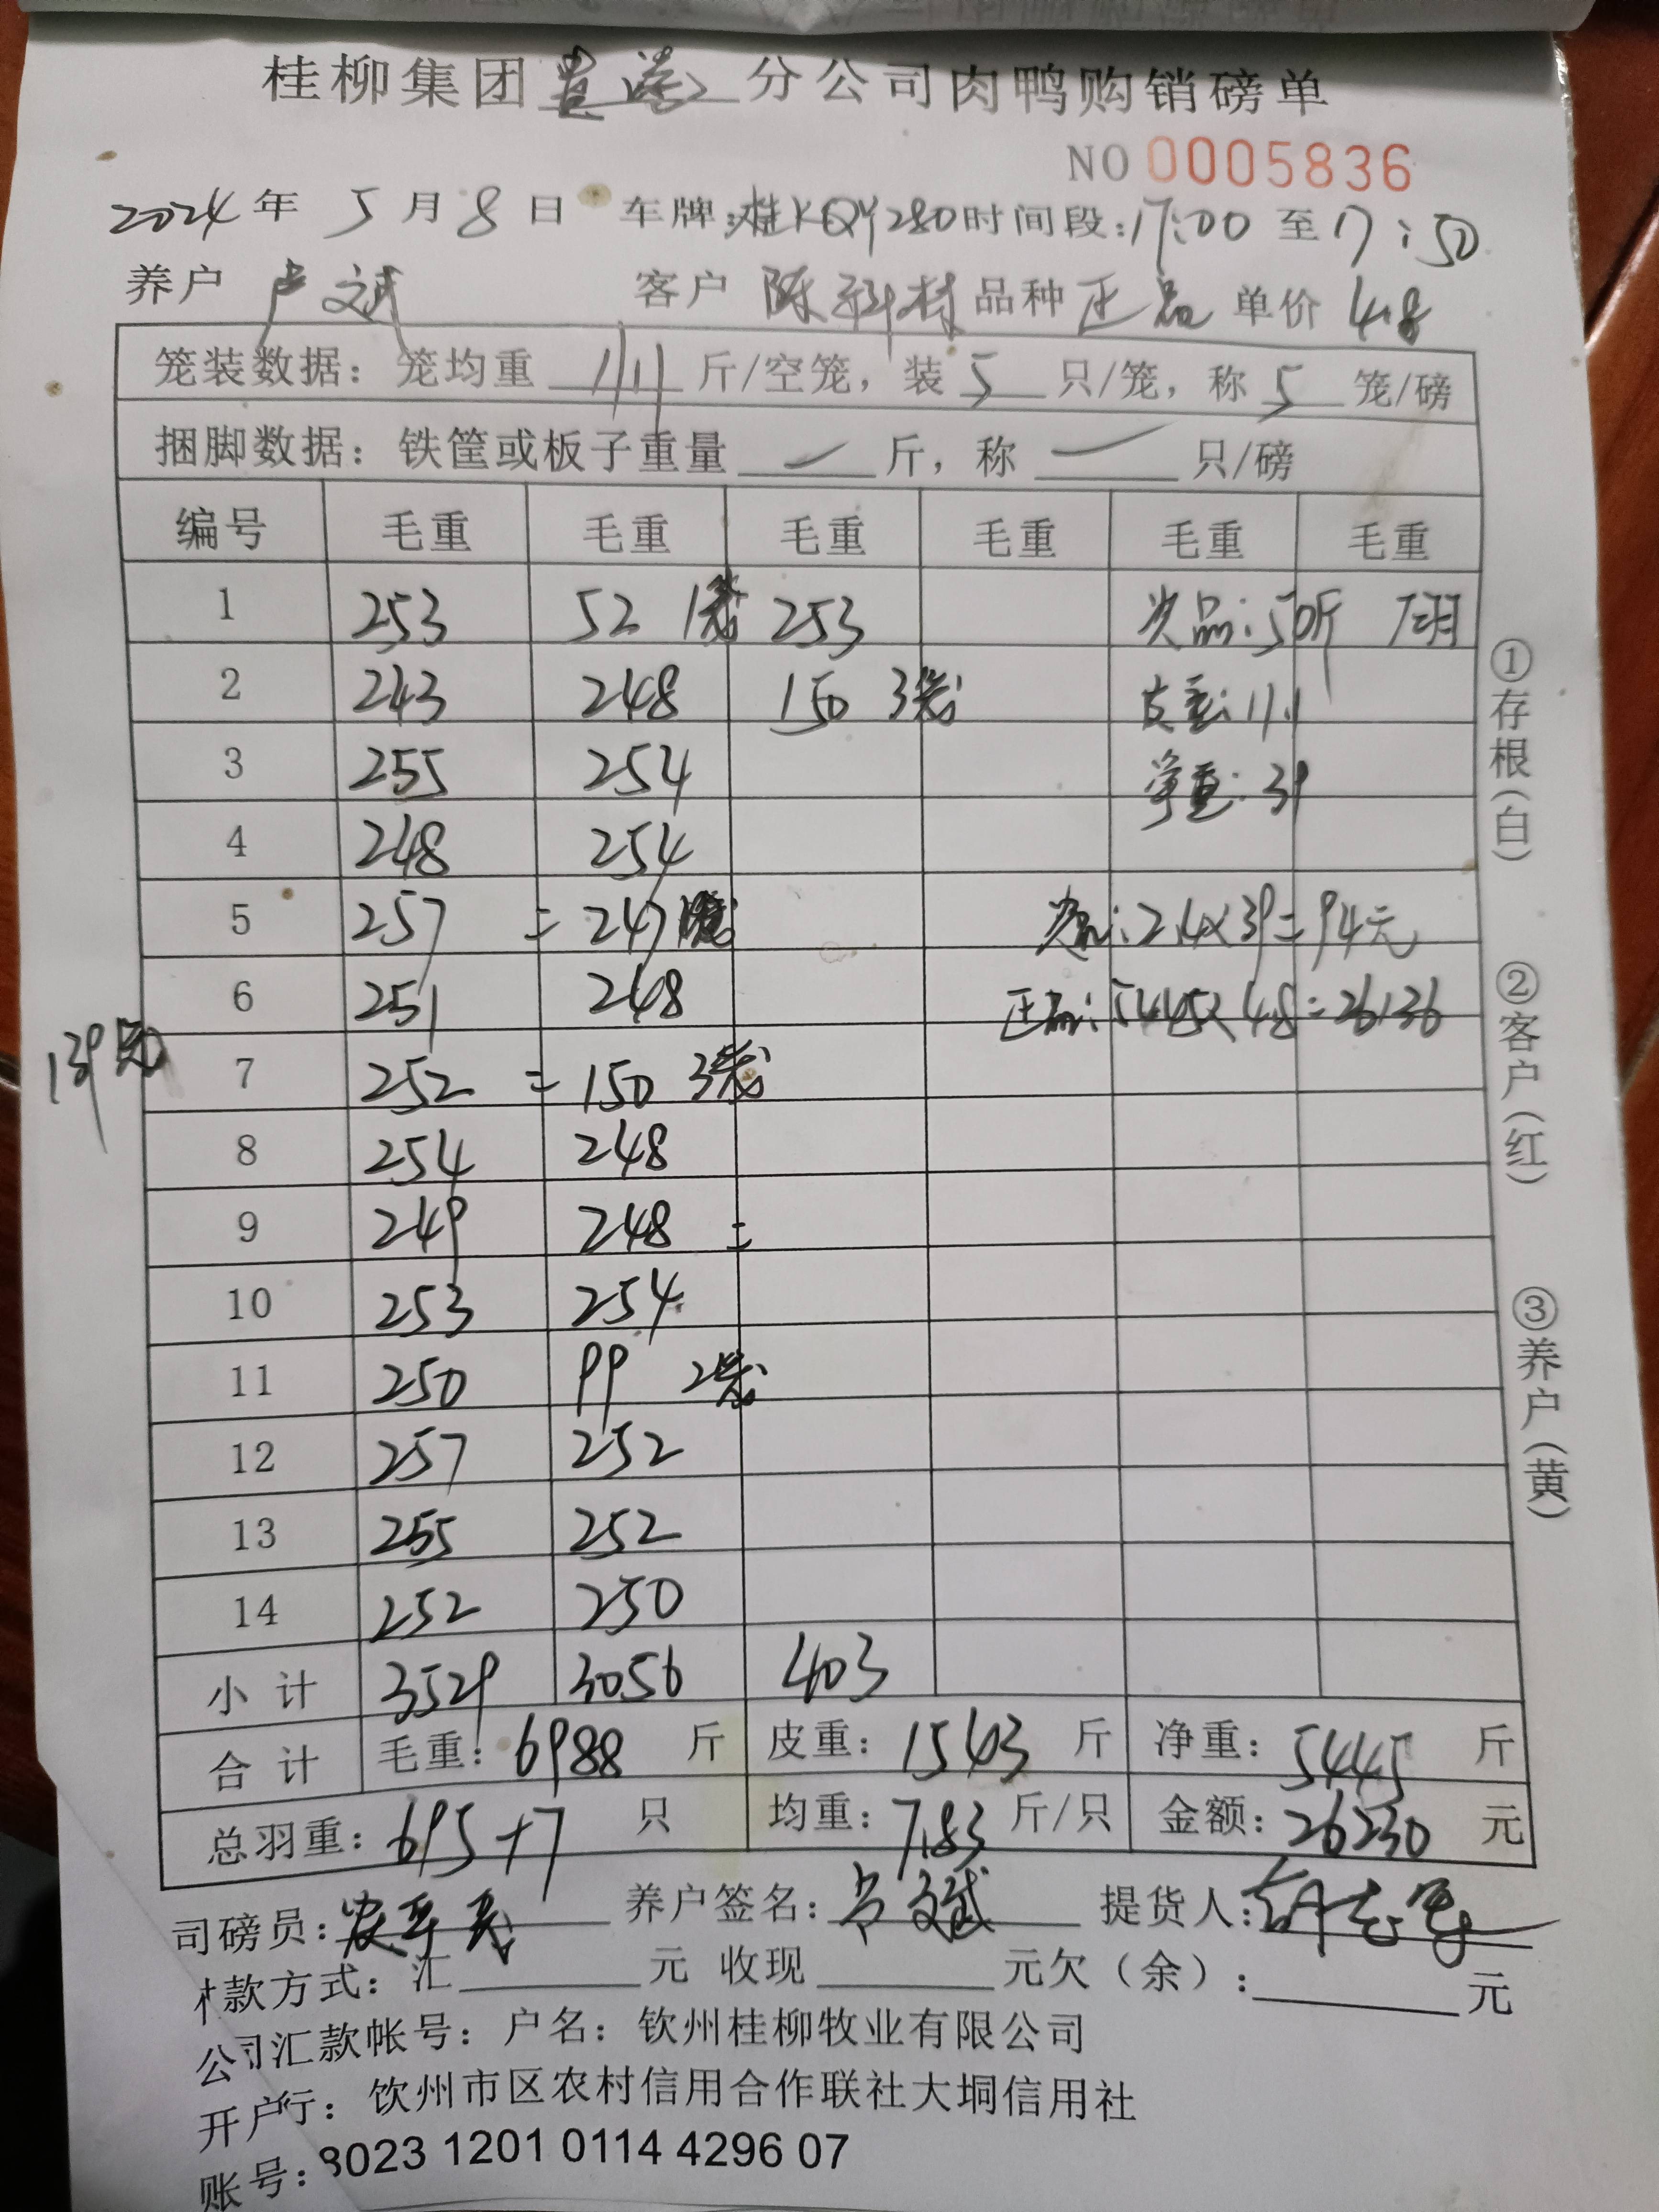 桂柳集团贵港分公司肉鸭购销磅单
NO 0005836
2024年 5月8日 车牌:桂KQY280时间段:17:00至17:50
养户 卢文斌 客户 陈科材 品种 正品 单价 4.8
笼装数据: 笼均重 11.1 斤/空笼, 装 5 只/笼, 称 5 笼/磅
捆脚数据: 铁筐或板子重量 — 斤, 称 — 只/磅
编号 毛重 毛重 毛重 毛重 毛重 毛重
1 253 52 1笼 253 次品:50斤 7羽
2 243 248 150 3笼 皮重:11.1
3 255 254 净重:39
4 248 254
5 257 = 247 次品:2.4×39=94元
6 251 248 正品:5445×4.8=26136
139笼
7 252 = 150 3笼
8 254 248
9 249 248 =
10 253 254
11 250 99 2笼
12 257 252
13 255 252
14 252 250
小计 3529 3056 403
合计 毛重: 6988 斤 皮重: 1543 斤 净重: 5445 斤
总羽重: 695+7 只 均重: 7.83 斤/只 金额: 26230 元
司磅员: 养户签名: 卢文斌 提货人:
款方式: 汇 元 收现 元欠(余): 元
公司汇款帐号: 户名: 钦州桂柳牧业有限公司
开户行: 钦州市区农村信用合作联社大垌信用社
账号: 8023 1201 0114 4296 07
①存根(白)
②客户(红)
③养户(黄)